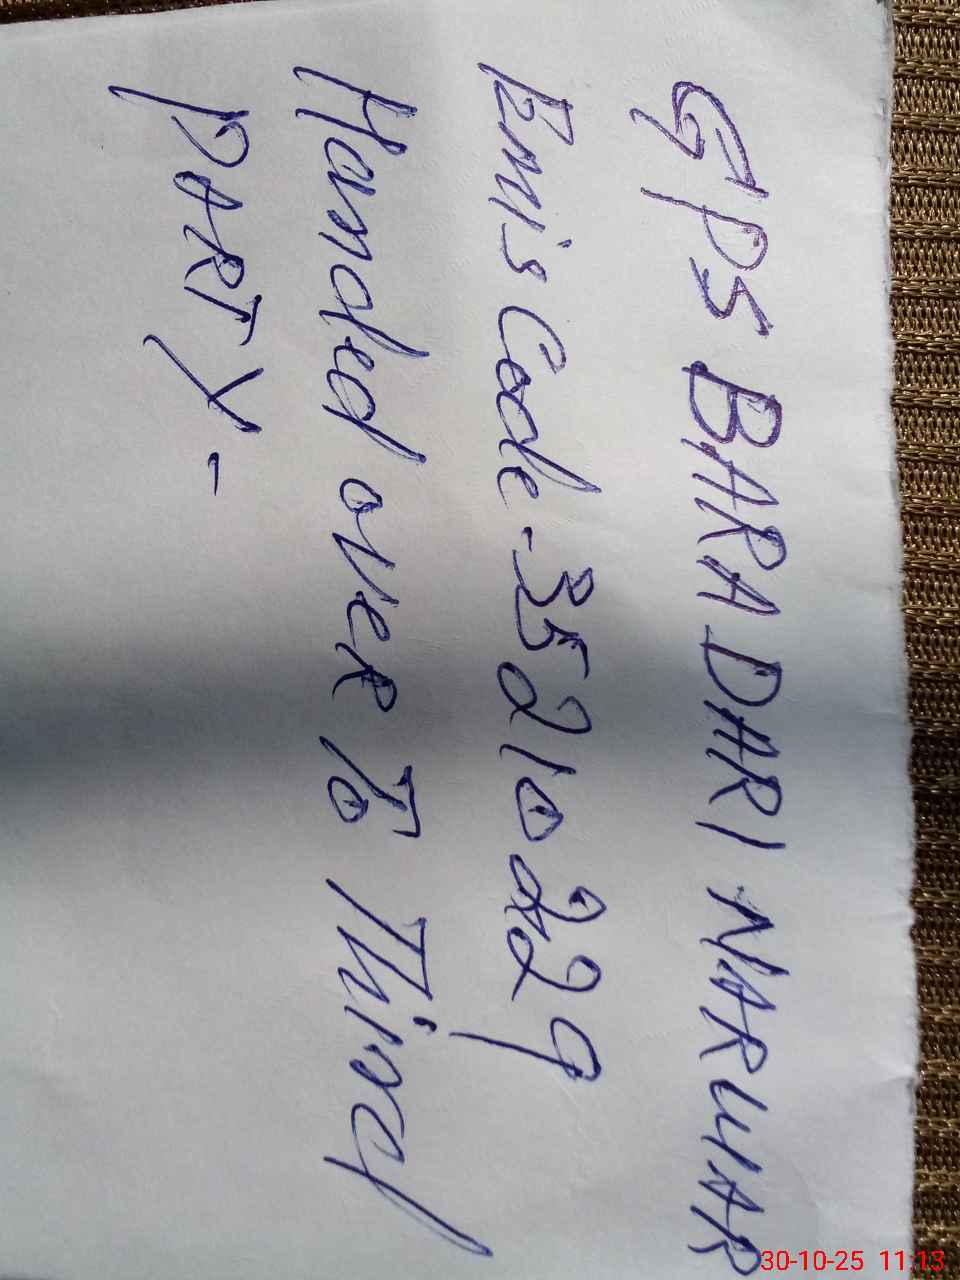 GPS BARA DARI NARWAR
Emis Code-35210229
Handed over To Third
PARTY-
30-10-25 11:13